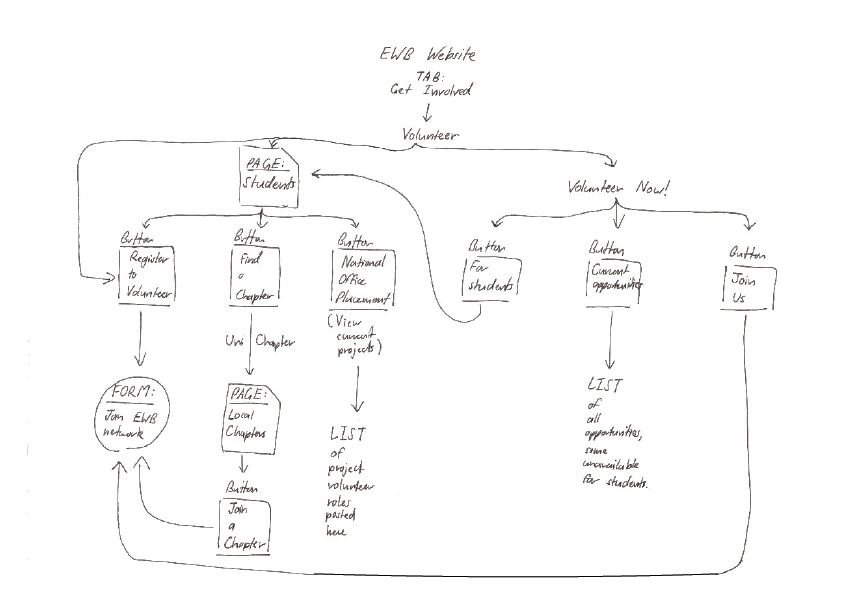 EWB Website
TAB:
Get Involved
Volunteer
PAGE:
Students
Volunteer Now!
Button
Register
to
Volunteer
Button
Find
a
Chapter
Button
National
Office
Placement
(View
current
projects)
Button
For
students
Button
Current
opportunities
Button
Join
Us
Uni Chapter
FORM:
Join EWB
network
PAGE:
Local
Chapters
Button
Join
a
Chapter
LIST
of
project
volunteer
roles
posted
here
LIST
of
all
opportunities,
some
unavailable
for students.